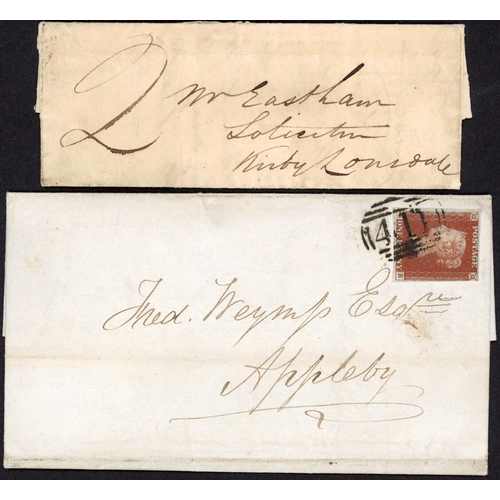 2
Mr Eastham
Solicitor
Kirby Lonsdale
POSTAGE
Fred. Weymss Esqre
Appleby